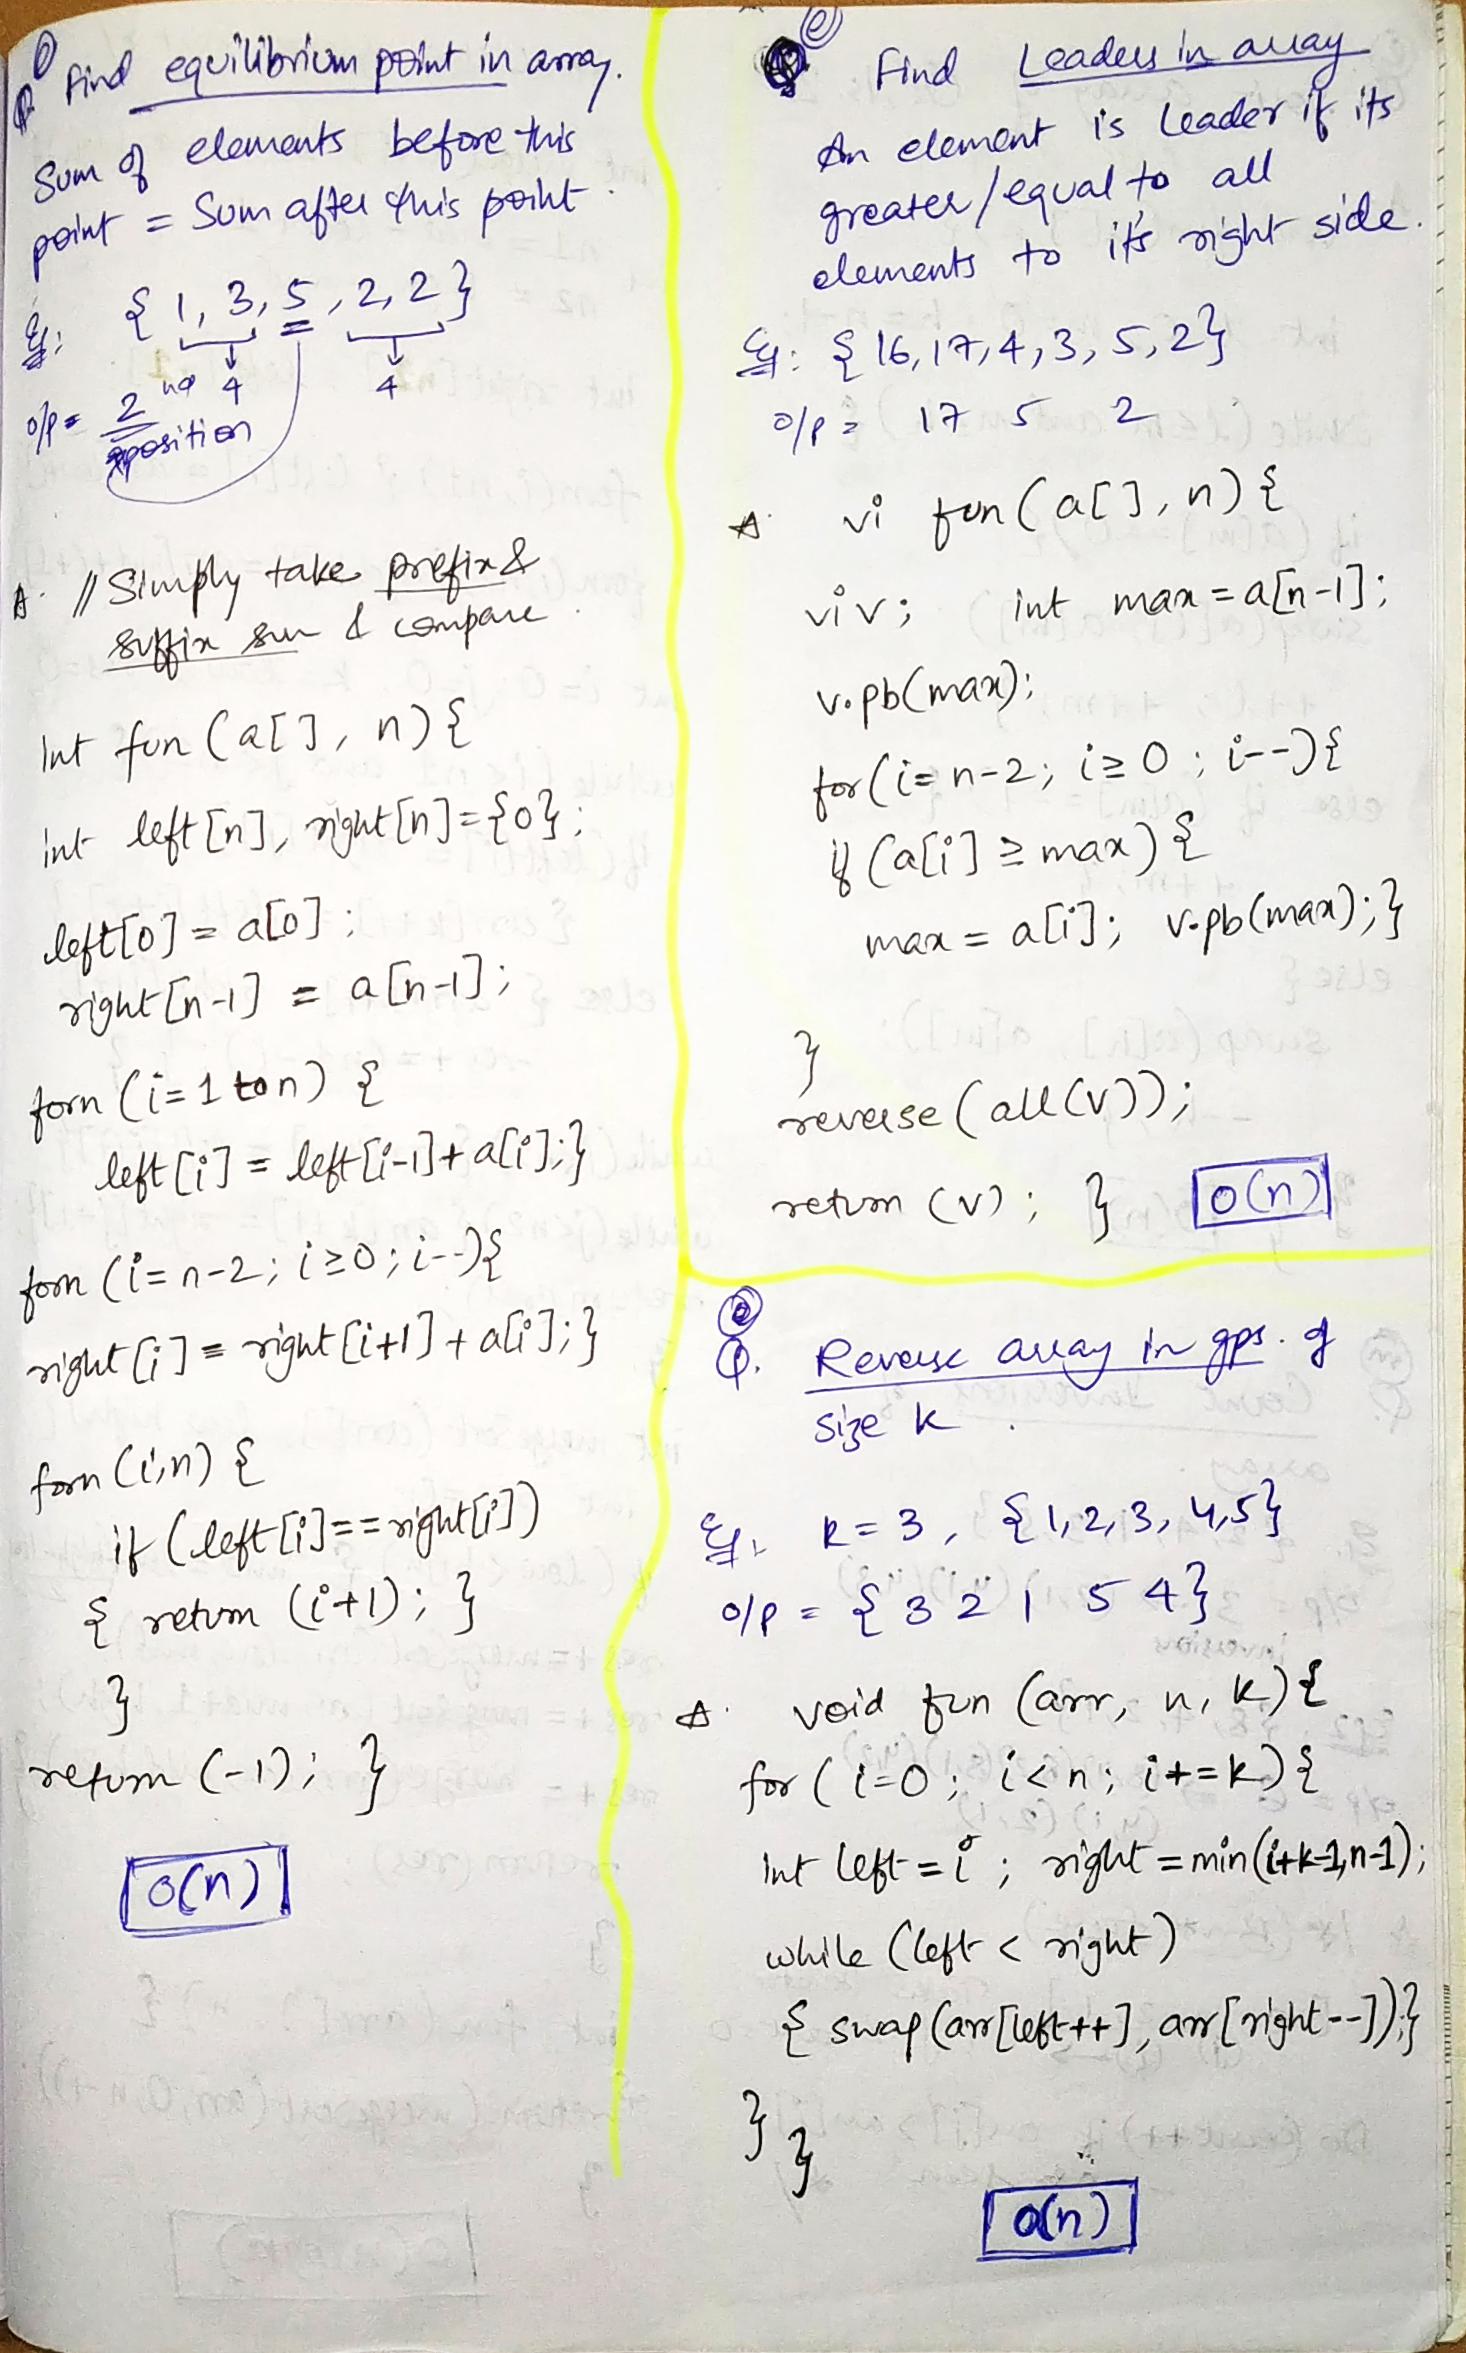 Q. Find equilibrium point in array.
Sum of elements before this
point = Sum after this point.
Eg: { 1, 3, 5, 2, 2 }
4 4
o/p = 2nd
position
A. // Simply take prefix &
suffix sum & compare.
int fun (a[], n) {
int left[n], right[n] = {0};
left[0] = a[0];
right[n-1] = a[n-1];
forn (i=1 to n) {
left[i] = left[i-1] + a[i]; }
forn (i=n-2; i≥0; i--) {
right[i] = right[i+1] + a[i]; }
forn (i,n) {
if (left[i] == right[i])
{ return (i+1); }
}
return (-1); }
O(n)
Q. Find Leaders in array
An element is leader if its
greater/equal to all
elements to it's right side.
Eg: { 16, 17, 4, 3, 5, 2 }
o/p = 17 5 2
A. vi fun (a[], n) {
vi v; int max = a[n-1];
v.pb(max);
for (i=n-2; i≥0; i--) {
if (a[i] ≥ max) {
max = a[i]; v.pb(max); }
}
reverse (all(v));
return (v); } O(n)
Q. Reverse array in gps. of
size k.
Eg. k=3, { 1, 2, 3, 4, 5 }
o/p = { 3 2 1 5 4 }
A. void fun (arr, n, k) {
for (i=0; i<n; i+=k) {
int left = i; right = min(i+k-1, n-1);
while (left < right)
{ swap (arr[left++], arr[right--]); }
}
}
O(n)